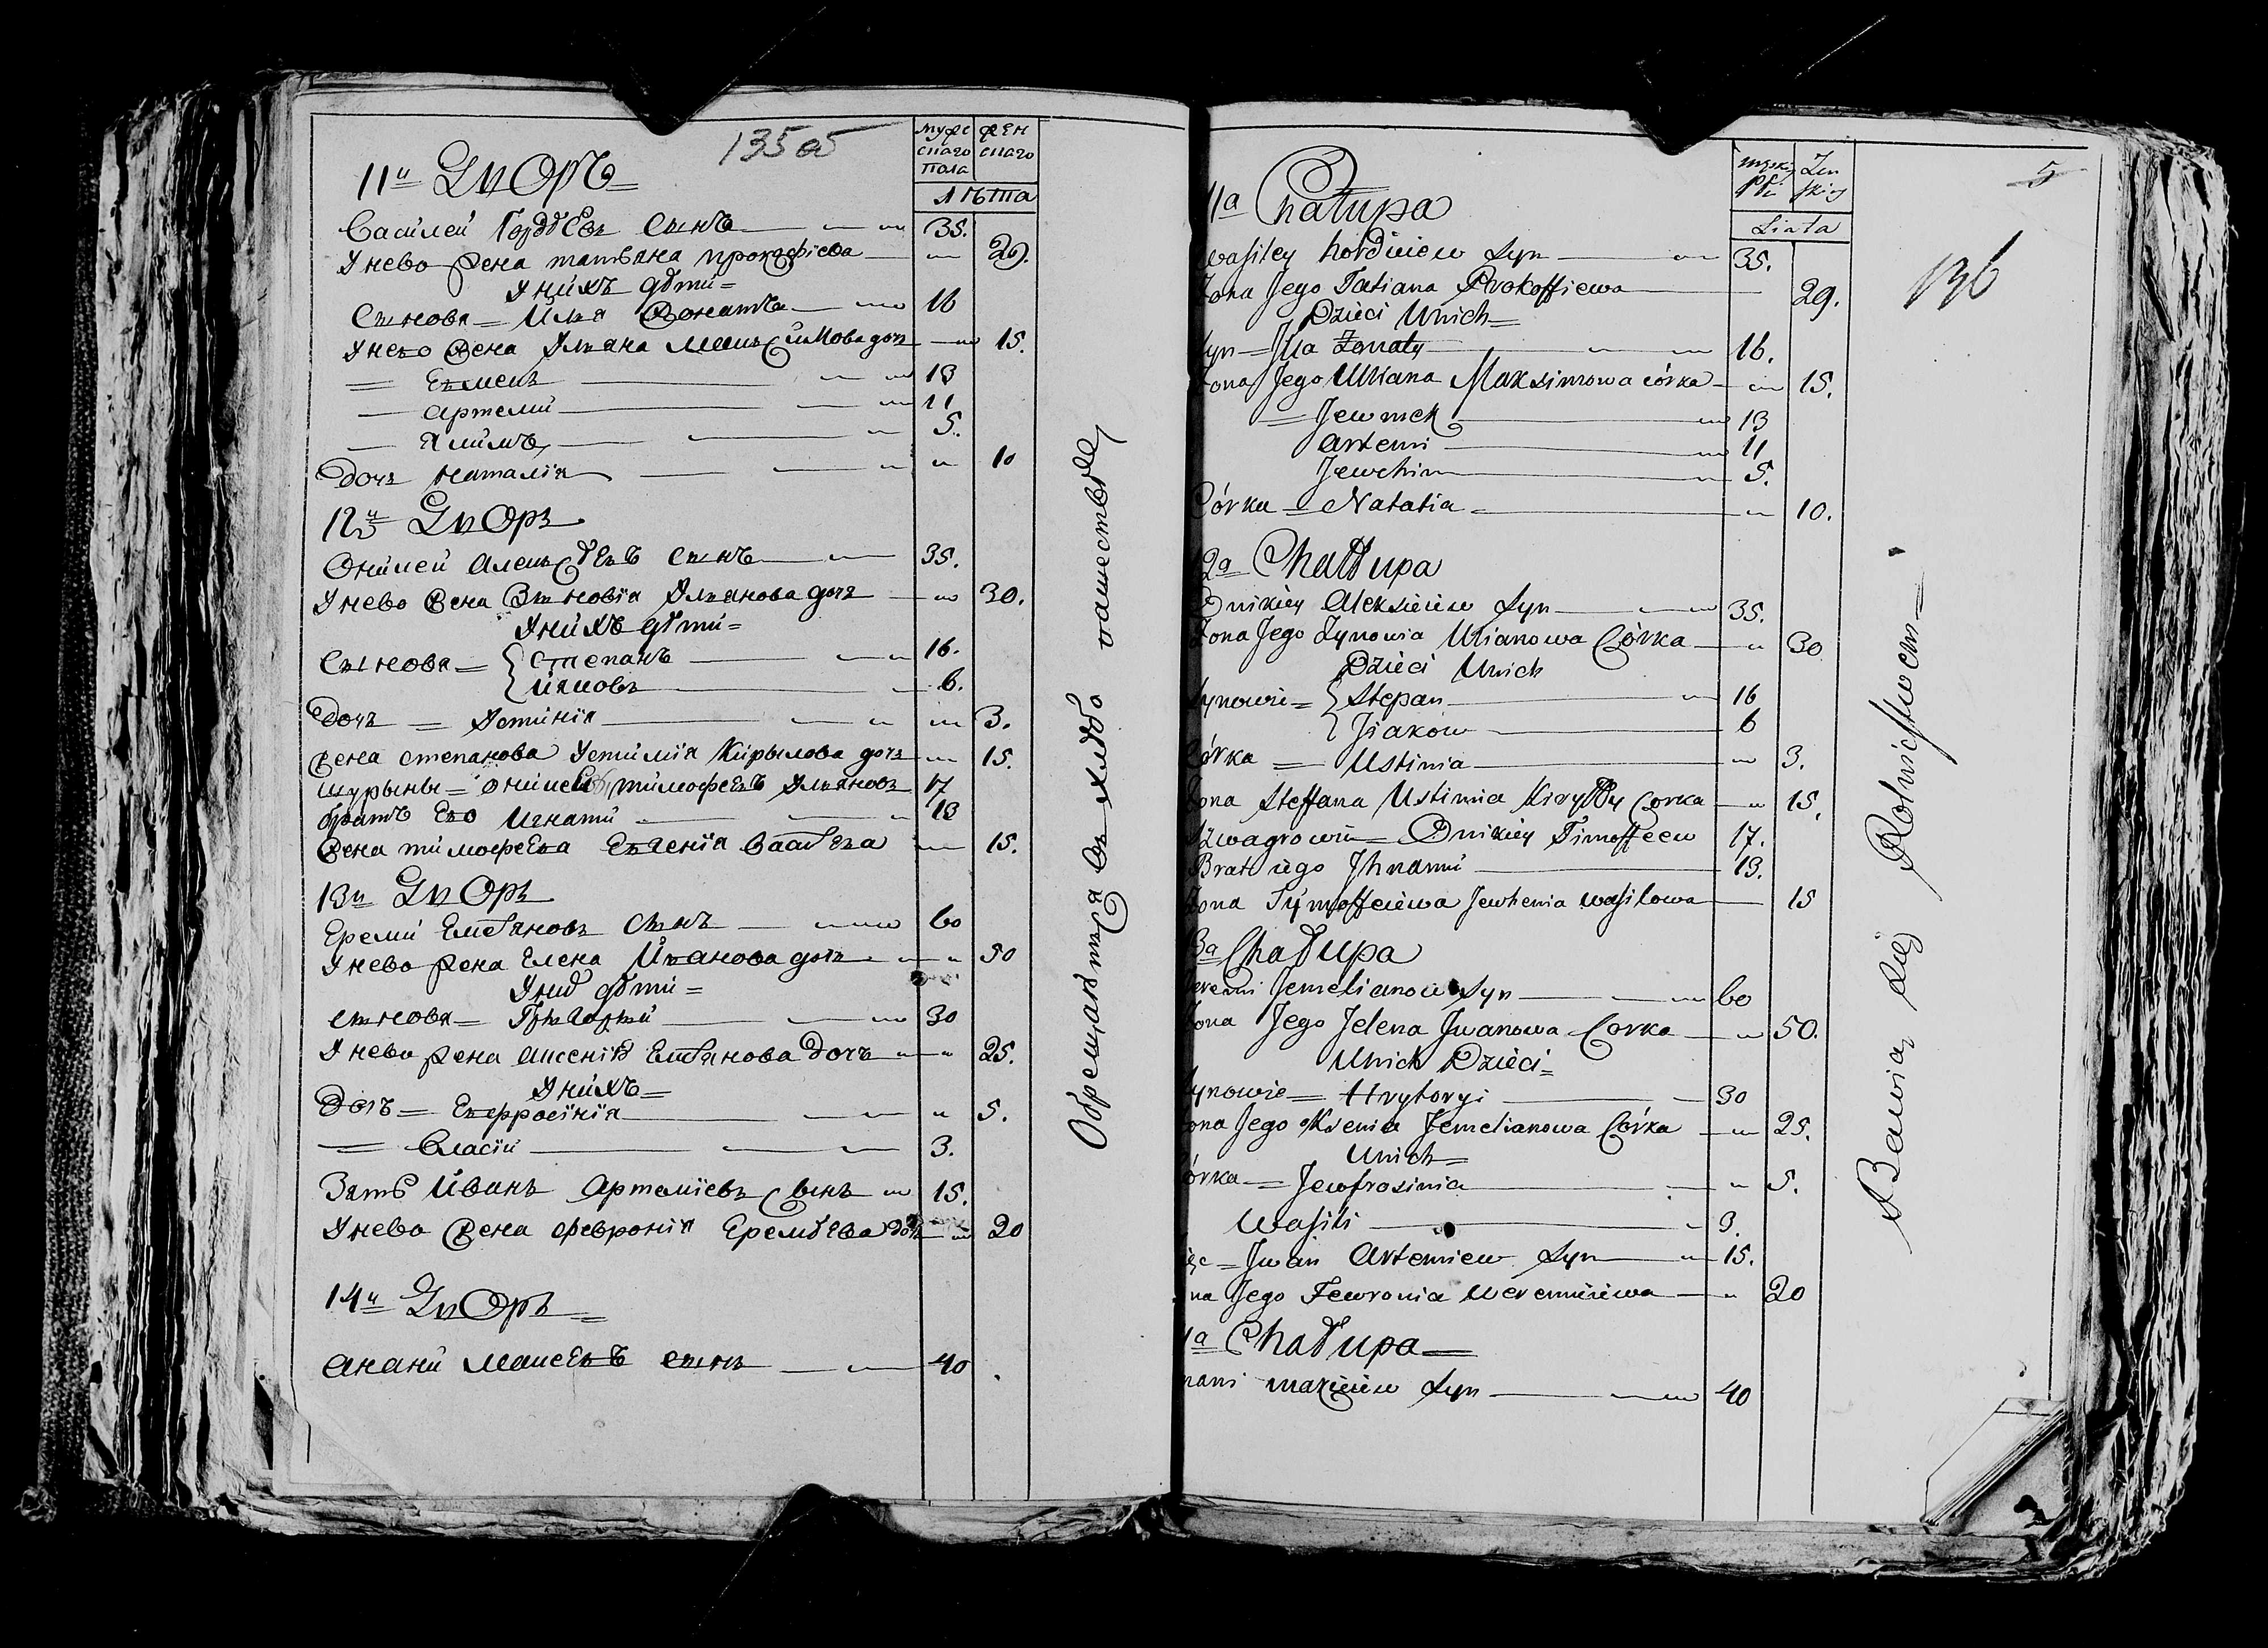 135об
11й Дворъ
мужескаго пола
женскаго
лѣта
Василей Гордѣевъ сынъ 35.
У нево жена татьяна прокофiева 29.
У нихъ дѣти
Сынова Илья Женатъ 16
У нево жена Ульяна Максимова дочь 15.
Евменъ 13
артемiй 11
Якимъ 5.
Дочь наталiя 10
12й Дворъ
Оникей Алексѣевъ сынъ 35.
У нево жена Зѣновiя Ульянова дочь 30.
У нихъ дѣти
Сынова степанъ 16.
Иаковъ 6.
Дочь Устинiя 3.
жена степанова Устимiя Кирылова дочь 15.
шурыны оникей тимофеевъ Ульяновъ 17
братъ Ево Игнатiй 13
жена тимофеева Евгенiя Василѣва 15.
13й Дворъ
Еремiй Емельяновъ сынъ 60
У нево жена Елена Иванова дочь 50
У них дѣти
сынова Григорiй 30
У нево жена аксенiя Емельянова дочь 25.
У нихъ
Дочь Евфросiнiя 5.
Власiй 3.
Зять Иванъ Артемiевъ сынъ 15.
У нево жена февронiя Еремѣева дочь 20
14й Дворъ
ананiй маисеевъ сынъ 40
Обрещаютца въ хлѣбо пашестве
5
136
11a Chałupa
męski płci
Żeń skiej
Liata
Wasiley hordieiew Syn 35.
Zona Jego Tatiana Prokoffiewa 29.
Dzieci Unich
Syn Jlia Zonaty 16.
Zona Jego Uliana Maksimowa córka 15.
Jewmek 13
Artemi 11
Jewchim 5.
Córka Natalia 10.
2a Chałupa
Onikiey Aleksieiew Syn 35.
Zona Jego Zynowia Ulianowa Córka 30
Dzieci Unich
Synowie Stepan 16
Jiakow 6
Córka Ustinia 3.
Zona Steffana Ustimia Kiryłły Corka 15.
Szwagrowie Onikiey Timoffeew 17.
Brat iego Jhnamii 13.
Zona Tymoffeiewa Jewhenia Wasilowa 15
3a Chałupa
Jeremi Jemelianow Syn 60
Zona Jego Jelena Jwanowa Corka 50.
Unich Dzieci
Synowie Hryhoryi 30
Zona Jego Oksenia Jemelianowa Córka 25.
Unich
Córka Jewfrosinia 5.
Wasili 3.
Jwan Artemiew Syn 15.
na Jego Fewronia Weremieiewa 20
a Chałupa
nani mazieiew Syn 40
Bawią się Rolnictwem